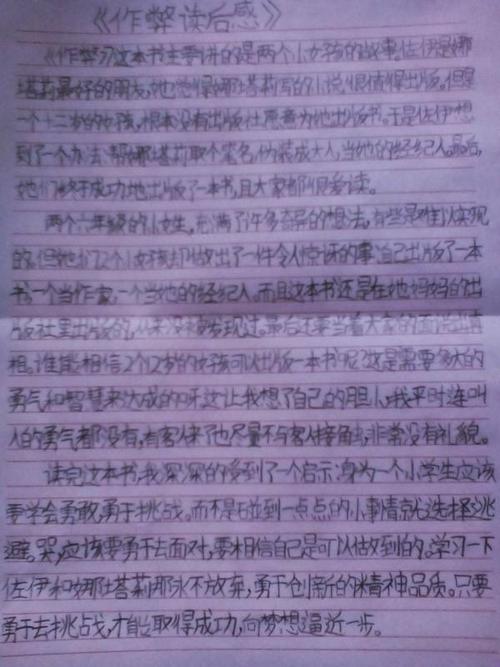 《作弊读后感》
《作弊》这本书主要讲的是两个小女孩的故事。佐伊是娜
塔莉最好的朋友,她觉得娜塔莉写的小说很值得出版。但是
一个十二岁的女孩,根本没有出版社愿意为她出版书。于是佐伊想
到了一个办法:帮娜塔莉取个笔名,伪装成大人,当她的经纪人。最后,
她们终于成功地出版了一本书,且大家都很爱读。
两个六年级的小女生,充满了许多奇异的想法,有些是难以实现
的,但她们2个小女孩却做出了一件令人惊讶的事:自己出版了一本
书。一个当作家,一个当她的经纪人。而且这本书还是在她妈妈的出
版社里出版的,从来没被发现过。最后还要当着大家的面说出真
相。谁能相信2个12岁的女孩可以出版一本书呢?这是需要多大的
勇气和智慧来达成的呀!这让我想了自己的胆小:我平时连叫
人的勇气都没有,有客人来了也尽量不与客人接触,非常没有礼貌。
读完这本书,我深深的受到了一个启示:身为一个小学生应该
要学会勇敢,勇于挑战。而不是碰到一点点的小事情就选择逃
避。哭,应该要勇于去面对,要相信自己是可以做到的。学习一下
佐伊和娜塔莉那永不放弃,勇于创新的精神品质。只要
勇于去挑战,才能取得成功,向梦想逼近一步。